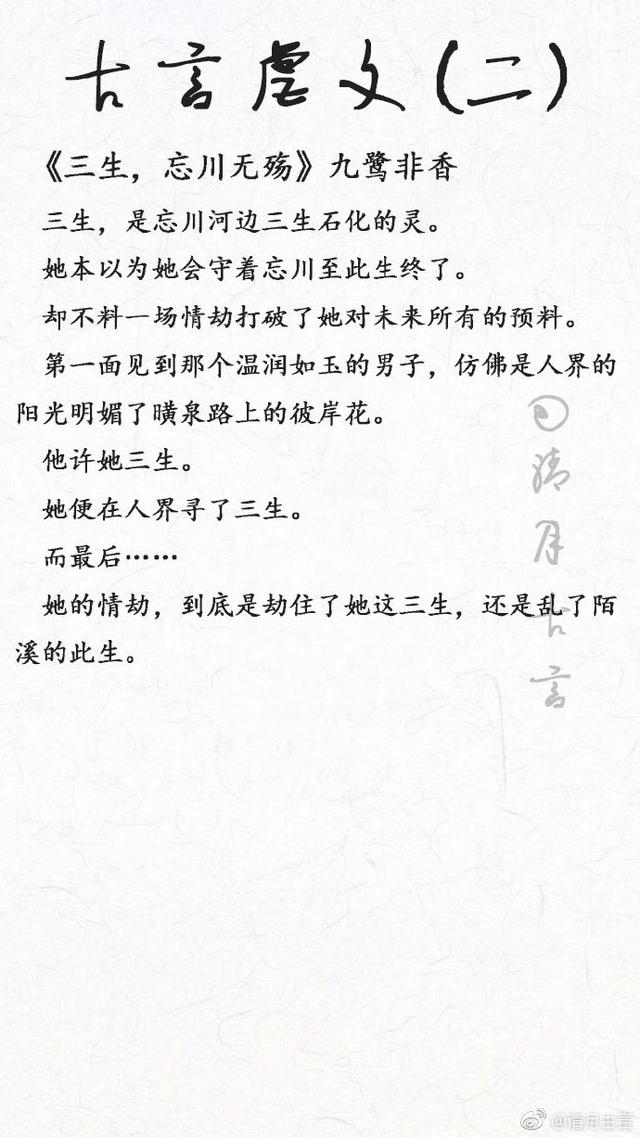 古言虐文(二)
《三生，忘川无殇》九鹭非香
三生，是忘川河边三生石化的灵。
她本以为她会守着忘川至此生终了。
却不料一场情劫打破了她对未来所有的预料。
第一面见到那个温润如玉的男子，仿佛是人界的
阳光明媚了黄泉路上的彼岸花。
他许她三生。
她便在人界寻了三生。
而最后……
她的情劫，到底是劫住了她这三生，还是乱了陌
溪的此生。
猜月古言
@猜月古言